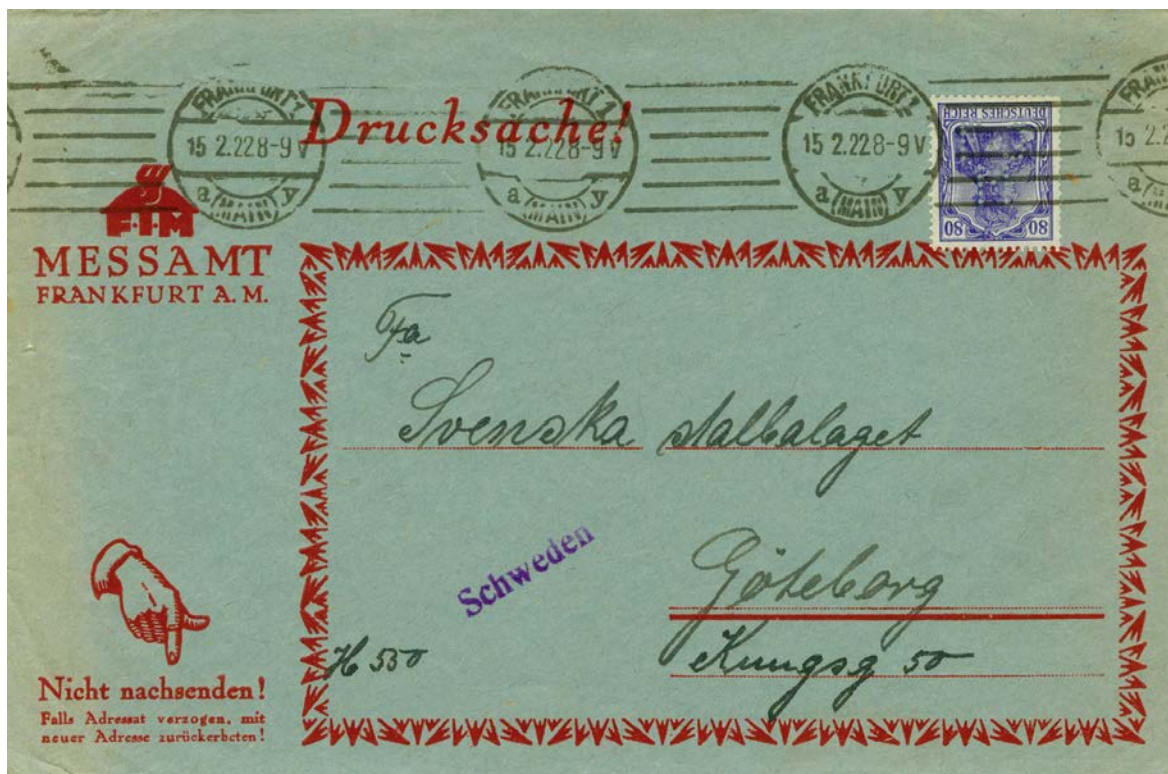 Drucksache!
FRANKFURT 1
15 2.22 8-9 V
a (MAIN) A
FRANKFURT 1
15 2.22 8-9 V
a (MAIN) A
FRANKFURT 1
15 2.22 8-9 V
a (MAIN) A
DEUTSCHES REICH
80 80
F·I·M
MESSAMT
FRANKFURT A. M.
Fa
Svenska stalbalaget
Schweden
Göteborg
H 550 Kungsg 50
Nicht nachsenden!
Falls Adressat verzogen, mit
neuer Adresse zurückerbeten!